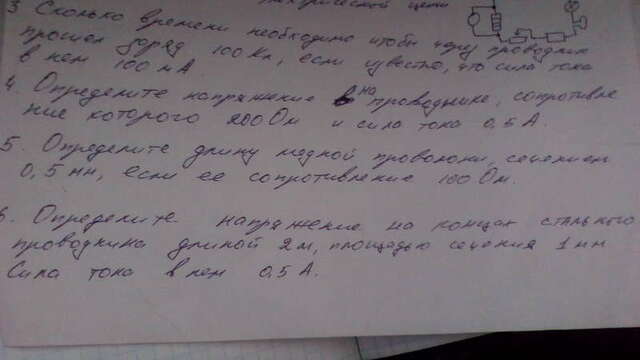 электрической цепи
3. Сколько времени необходимо чтобы через проводник
прошел заряд 100 Кл, если известно, что сила тока
в нем 100 мА
4. Определите напряжение на проводнике, сопротивле
ние которого 200 Ом и сила тока 0,5 А.
5. Определите длину медной проволоки, сечением
0,5 мм, если ее сопротивление 100 Ом.
6. Определите напряжение на концах стального
проводника длиной 2 м, площадью сечения 1 мм
Сила тока в нем 0,5 А.